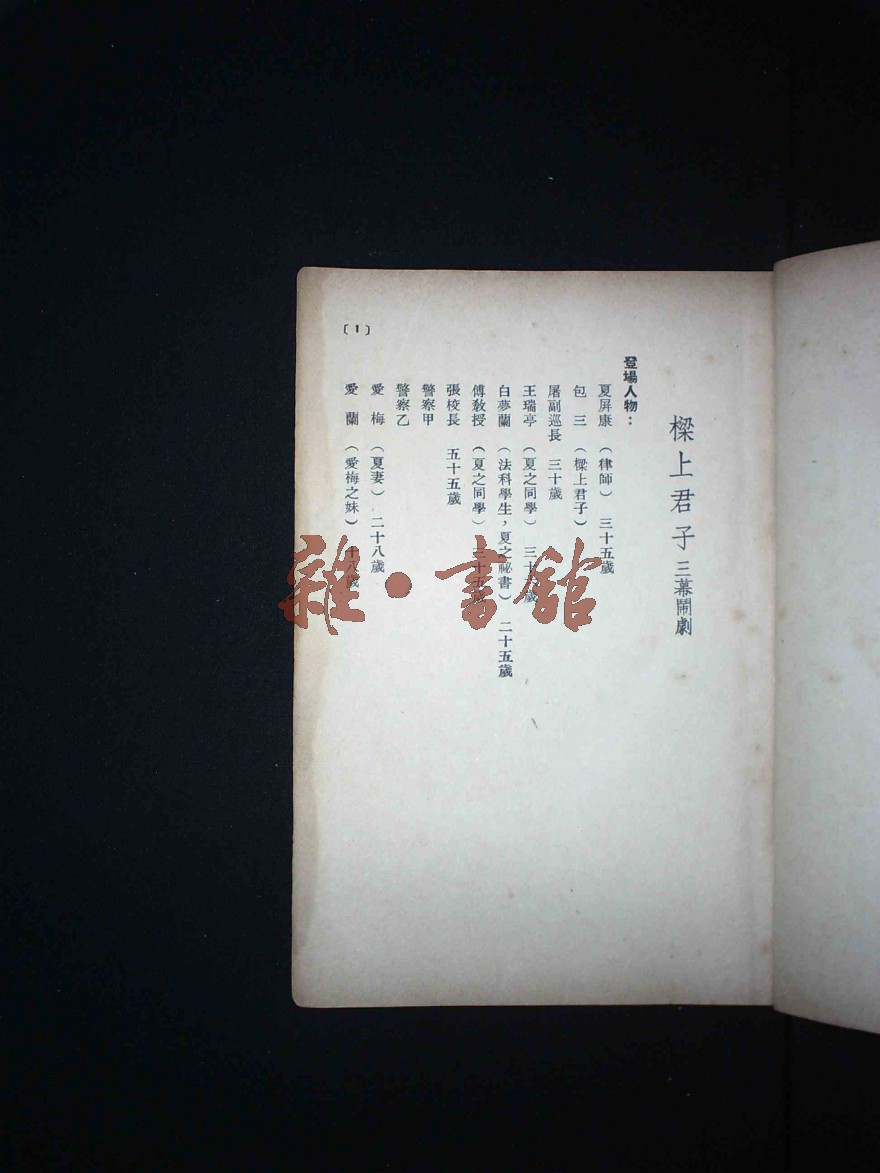 樑上君子 三幕鬧劇
登場人物：
夏屏康 （律師） 三十五歲
包 三 （樑上君子）
屠副巡長 三十歲
王瑞亭 （夏之同學） 三十 歲
白夢蘭 （法科學生，夏之祕書） 二十五歲
傅教授 （夏之同學） 三十五歲
張校長 五十五歲
警察甲
警察乙
愛 梅 （夏妻） 二十八歲
愛 蘭 （愛梅之妹） 十八歲
〔1〕
雜·書館